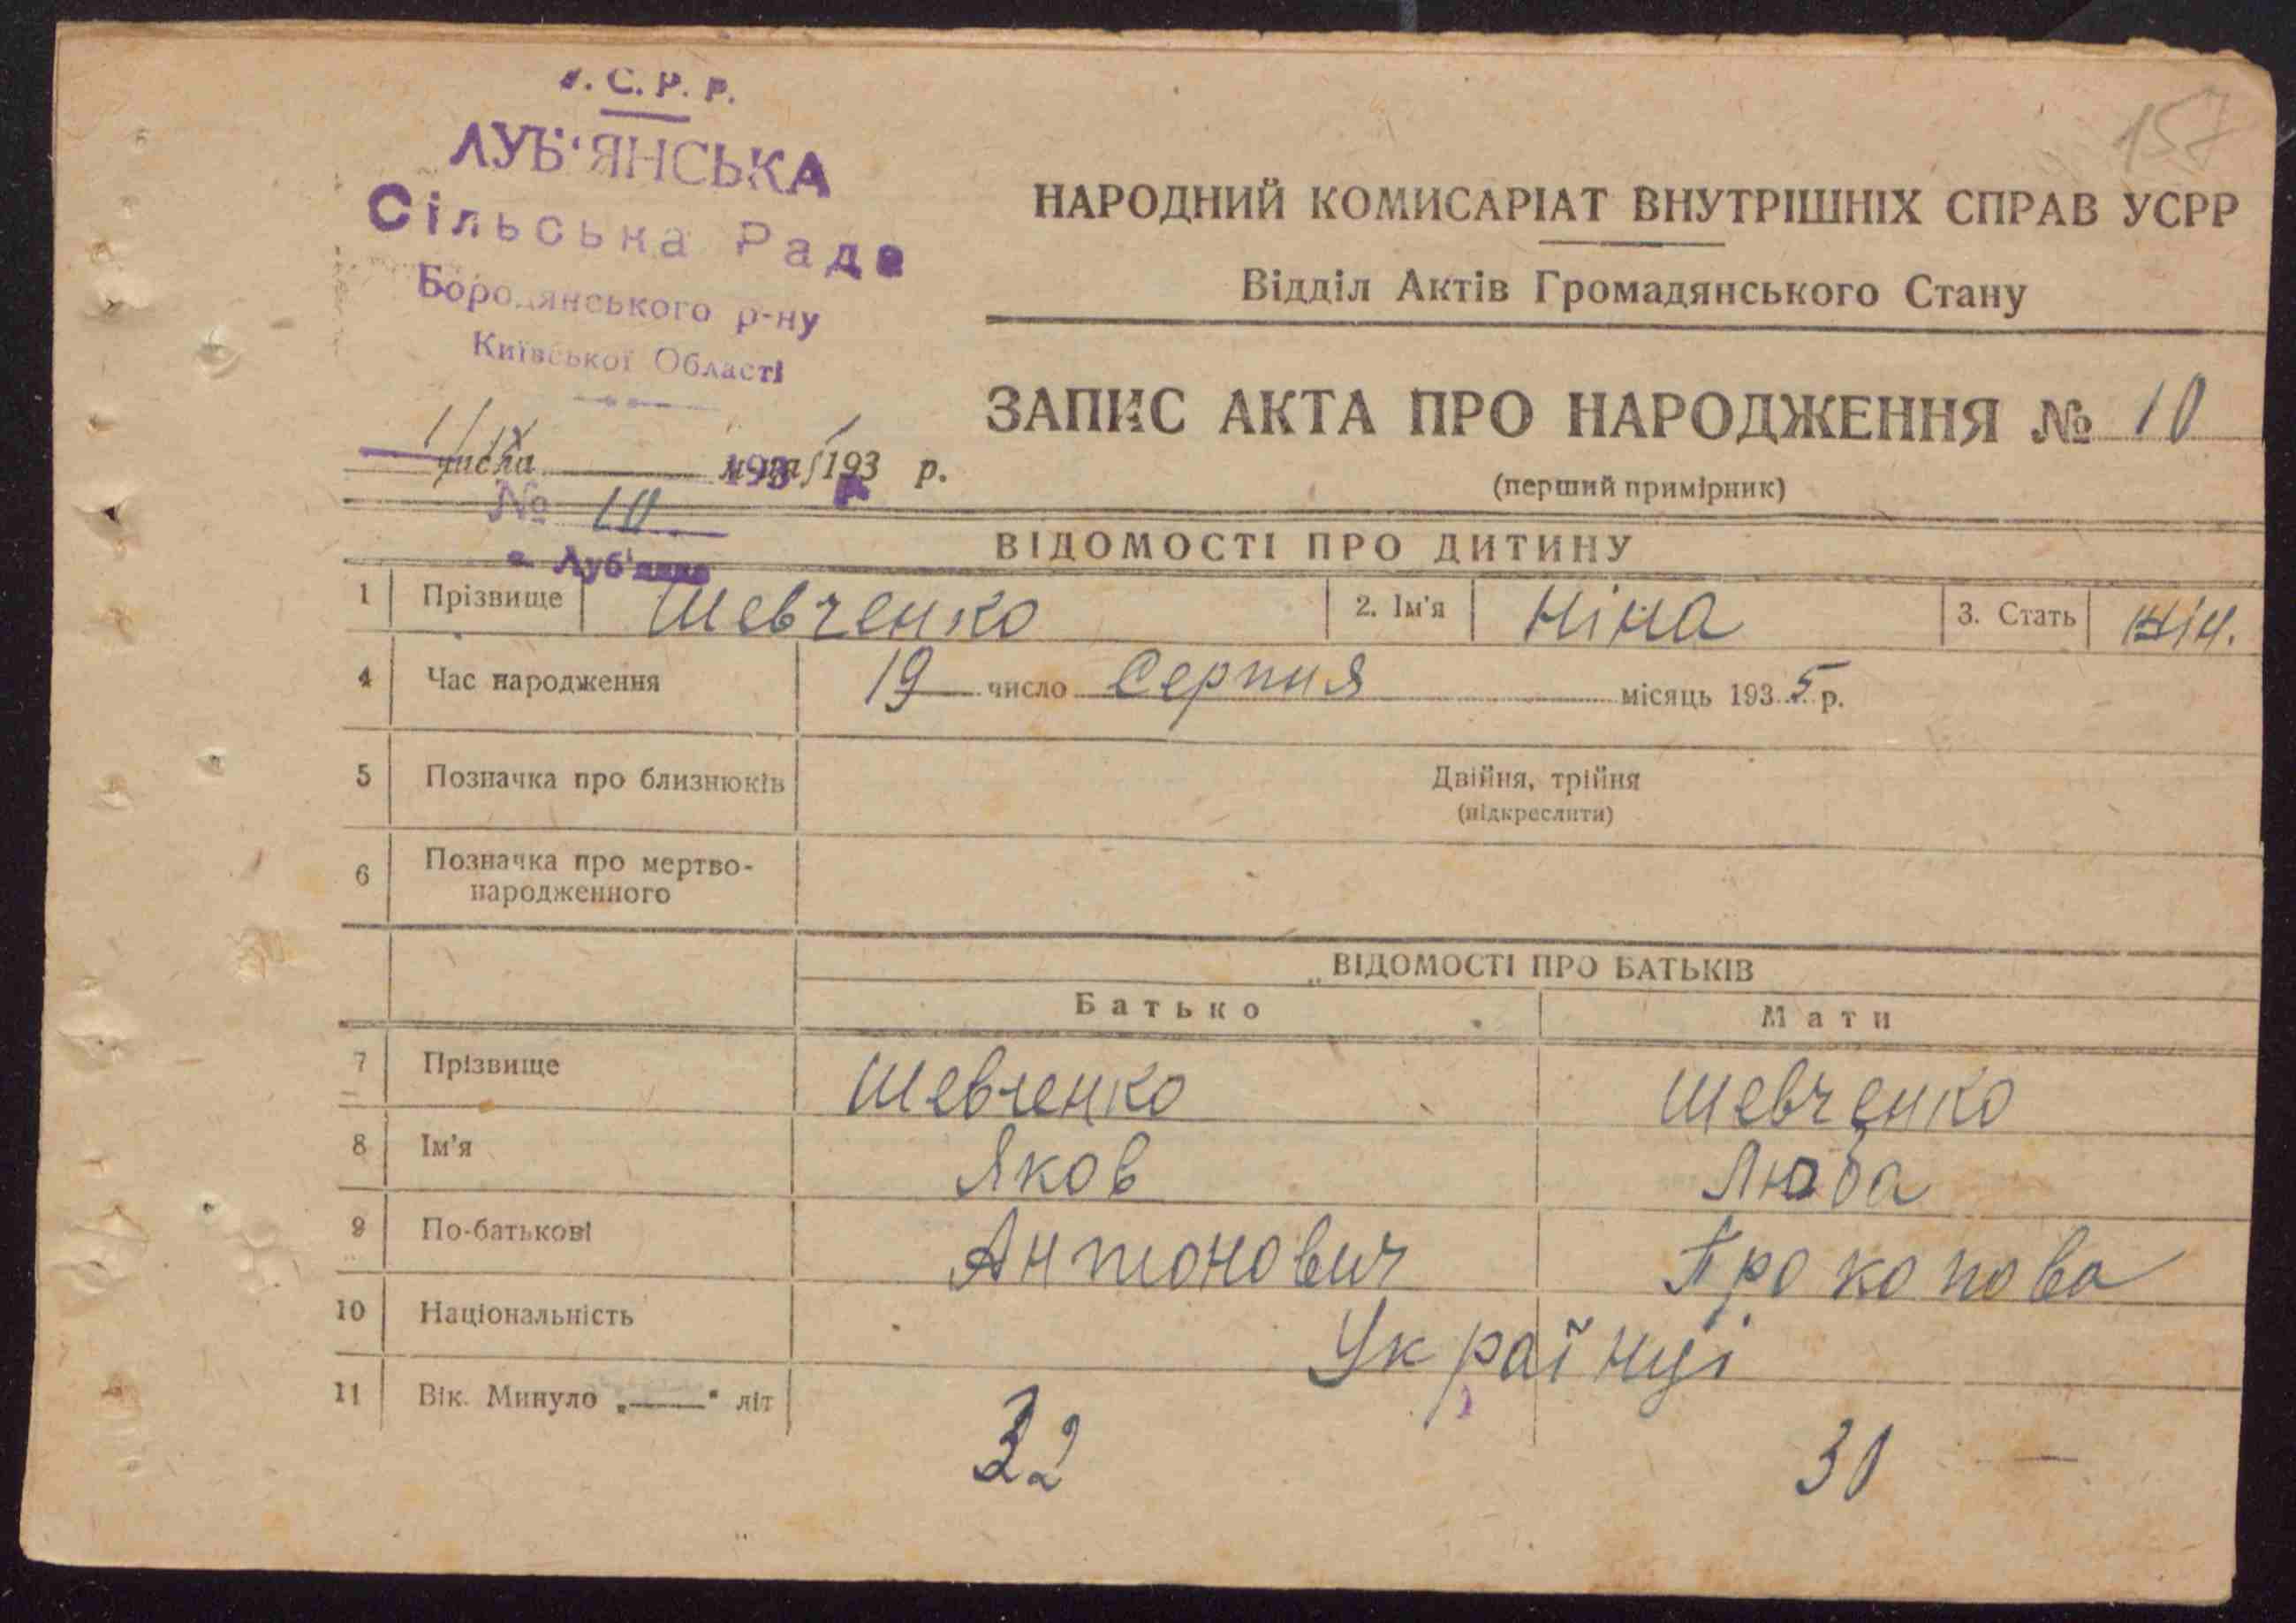 С. Р. Р.
ЛУБ'ЯНСЬКА
Сільська Рада
Бородянського р-ну
Київської Області
157
НАРОДНИЙ КОМИСАРІАТ ВНУТРІШНІХ СПРАВ УСРР
Відділ Актів Громадянського Стану
ЗАПИС АКТА ПРО НАРОДЖЕННЯ № 10
(перший примірник)
1/IX числа 193 р.
№ 10
с. Луб'янка
ВІДОМОСТІ ПРО ДИТИНУ
1 Прізвище Шевченко 2. Ім'я Ніна 3. Стать жін.
4 Час народження 19 число Серпня місяць 1935 р.
5 Позначка про близнюків Двійня, трійня
(підкреслити)
6 Позначка про мертво-
народженного
ВІДОМОСТІ ПРО БАТЬКІВ
Батько Мати
7 Прізвище Шевченко Шевченко
8 Ім'я Яков Люба
9 По-батькові Антонович Прокопова
10 Національність Українці
11 Вік. Минуло „——" літ 32 30